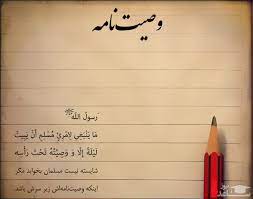 وصیت‌نامه
رسولُ الله ﷺ
مَا يَنْبَغِي لِامْرِئٍ مُسْلِمٍ أَنْ يَبِيتَ
لَيْلَةً إِلَّا وَ وَصِيَّتُهُ تَحْتَ رَأْسِهِ
شایسته نیست مسلمان بخوابد مگر
اینکه وصیت‌نامه‌اش زیر سرش باشد.